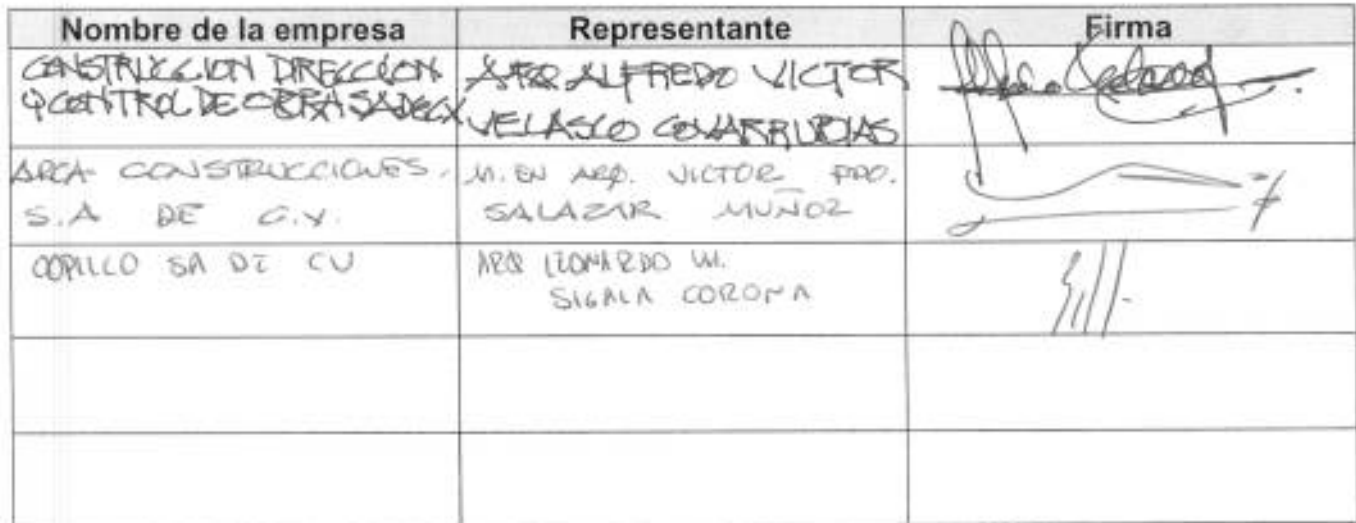 Nombre de la empresa Representante Firma
CONSTRUCCION DIRECCION
Y CONTROL DE OBRA SA DE CV
ARQ. ALFREDO VICTOR
VELASCO COVARRUBIAS
ARCA CONSTRUCCIONES,
S.A DE C.V.
M. EN ARQ. VICTOR FDO.
SALAZAR MUÑOZ
SA DE CV
ARQ LEONARDO M.
SIGALA CORONA